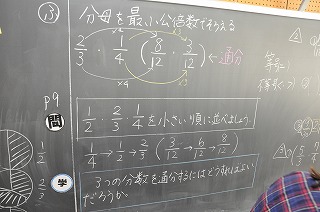 ⑬ 分母を最小公倍数でそろえる
2/3 ・ 1/4 (8/12 ・ 3/12) ←通分
×4
×3
P9
問 1/2 ・ 2/3 ・ 1/4 を小さい順に並べましょう。
1/4 → 1/2 → 2/3 (3/12 → 6/12 → 8/12)
学 3つの分数を通分するにはどうすればよい
だろうか。
1/2
2/3